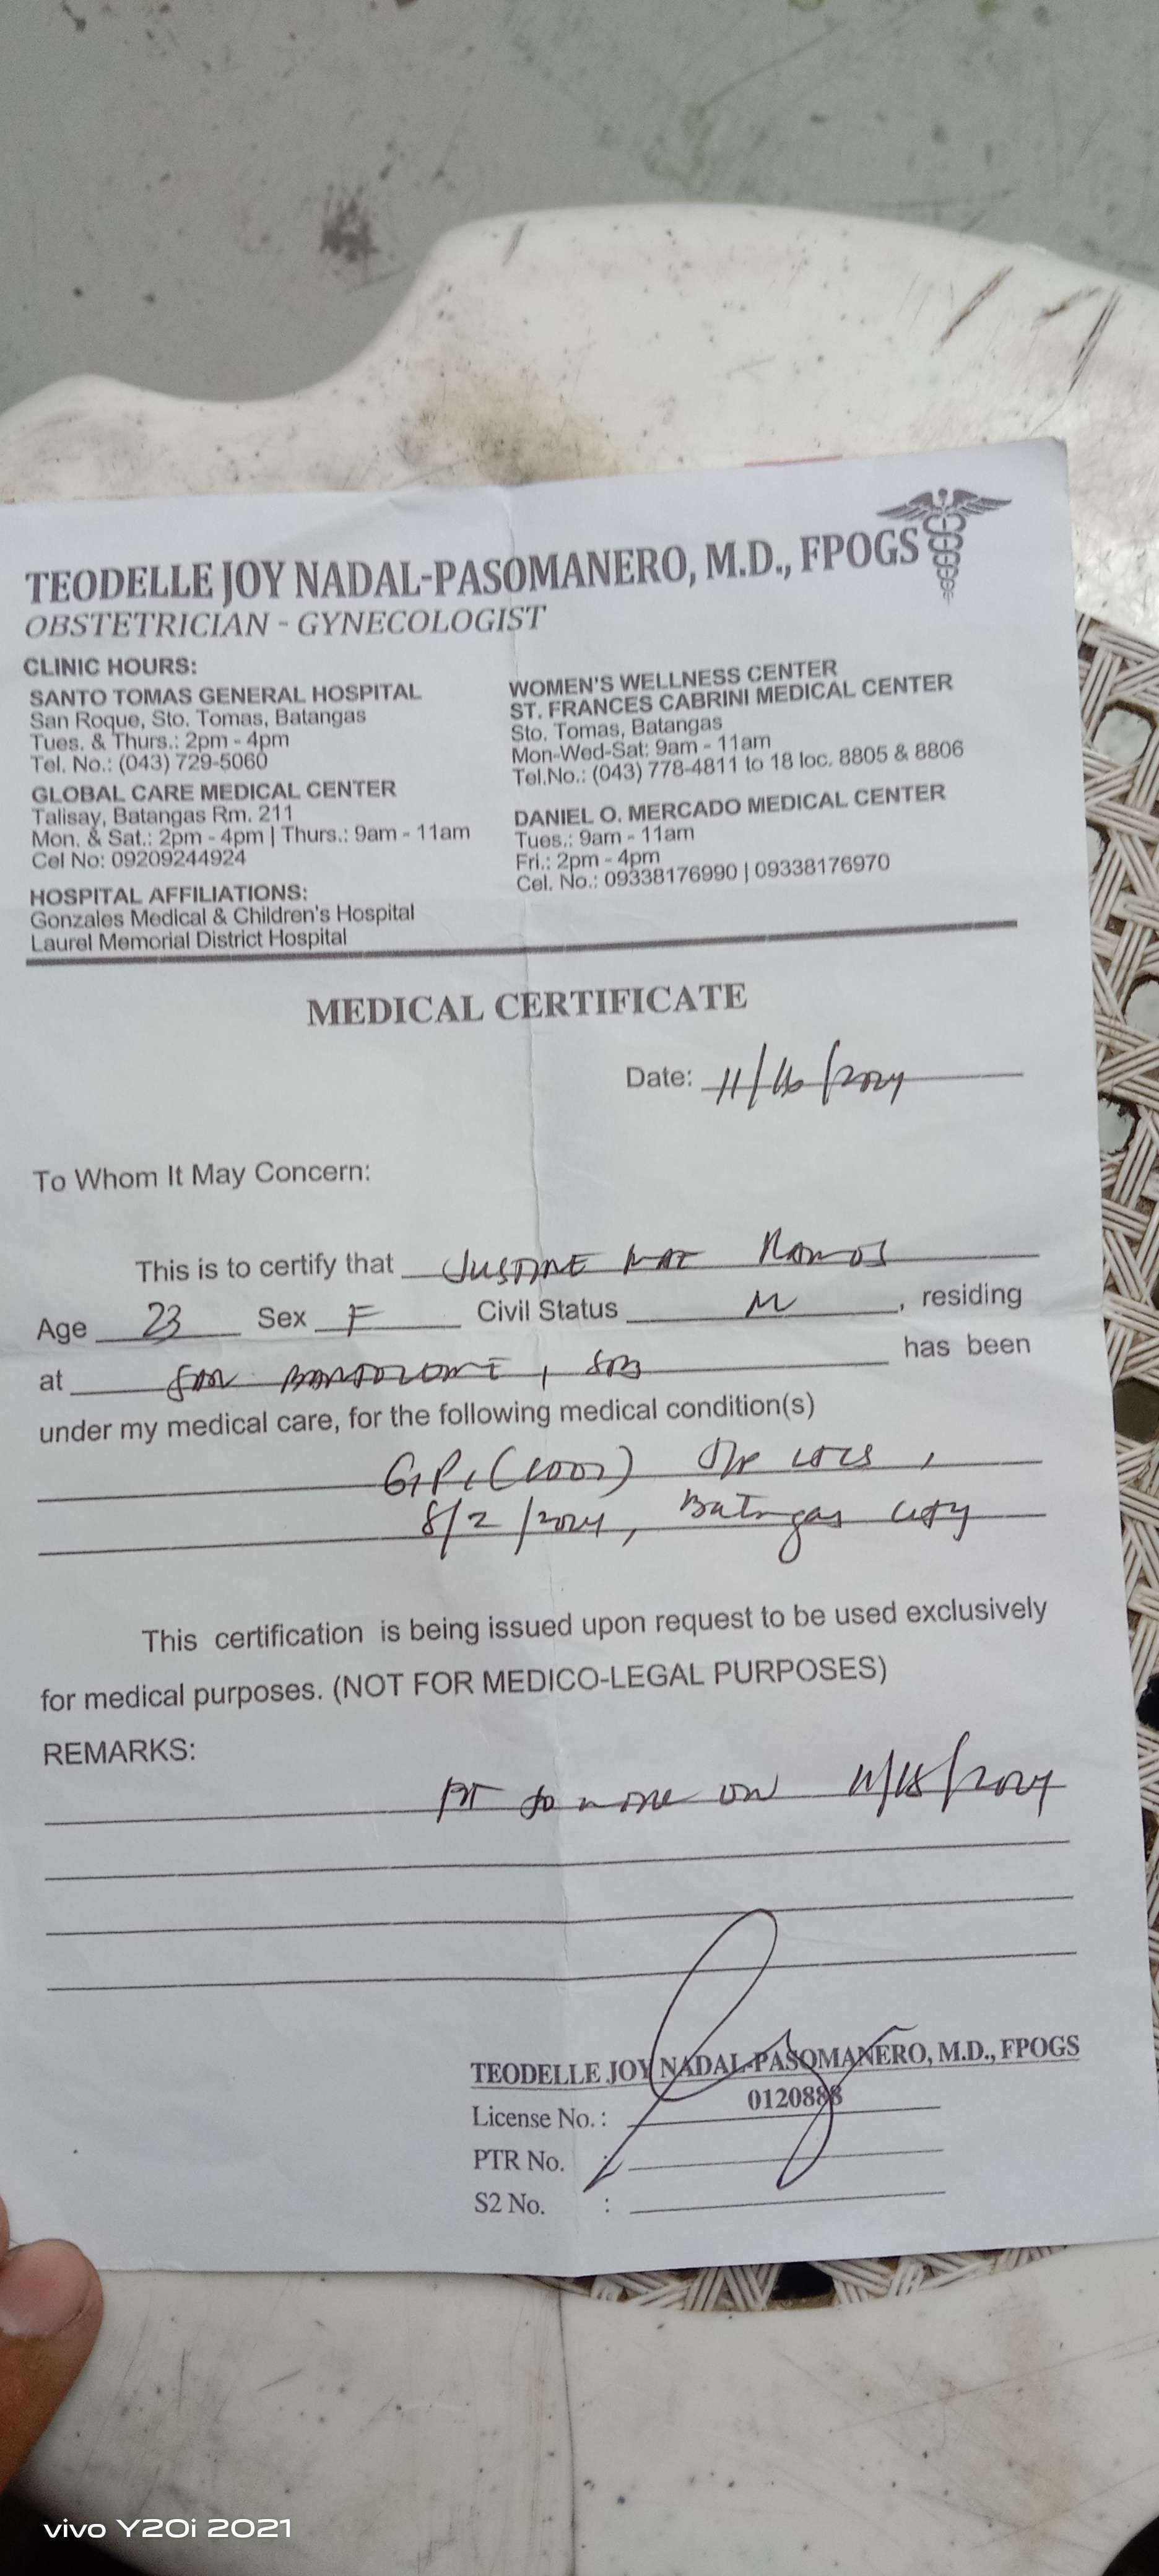 TEODELLE JOY NADAL-PASOMANERO, M.D., FPOGS
OBSTETRICIAN - GYNECOLOGIST
CLINIC HOURS:
SANTO TOMAS GENERAL HOSPITAL
San Roque, Sto. Tomas, Batangas
Tues. & Thurs.: 2pm - 4pm
Tel. No.: (043) 729-5060
GLOBAL CARE MEDICAL CENTER
Talisay, Batangas Rm. 211
Mon. & Sat.: 2pm - 4pm | Thurs.: 9am - 11am
Cel No: 09209244924
HOSPITAL AFFILIATIONS:
Gonzales Medical & Children's Hospital
Laurel Memorial District Hospital
WOMEN'S WELLNESS CENTER
ST. FRANCES CABRINI MEDICAL CENTER
Sto. Tomas, Batangas
Mon-Wed-Sat: 9am - 11am
Tel.No.: (043) 778-4811 to 18 loc. 8805 & 8806
DANIEL O. MERCADO MEDICAL CENTER
Tues.: 9am - 11am
Fri.: 2pm - 4pm
Cel. No.: 09338176990 | 09338176970
MEDICAL CERTIFICATE
Date: 11/16/2024
To Whom It May Concern:
This is to certify that JUSTINE MAE RAMOS
Age 23 Sex F Civil Status M, residing
at SAN BARTOLOME, has been
under my medical care, for the following medical condition(s)
G1P1 (1001) S/P
8/2/2024, Batangas City
This certification is being issued upon request to be used exclusively
for medical purposes. (NOT FOR MEDICO-LEGAL PURPOSES)
REMARKS:
to on 11/18/2024
TEODELLE JOY NADAL-PASOMAÑERO, M.D., FPOGS
License No.: 0120888
PTR No. :
S2 No. :
vivo Y20i 2021